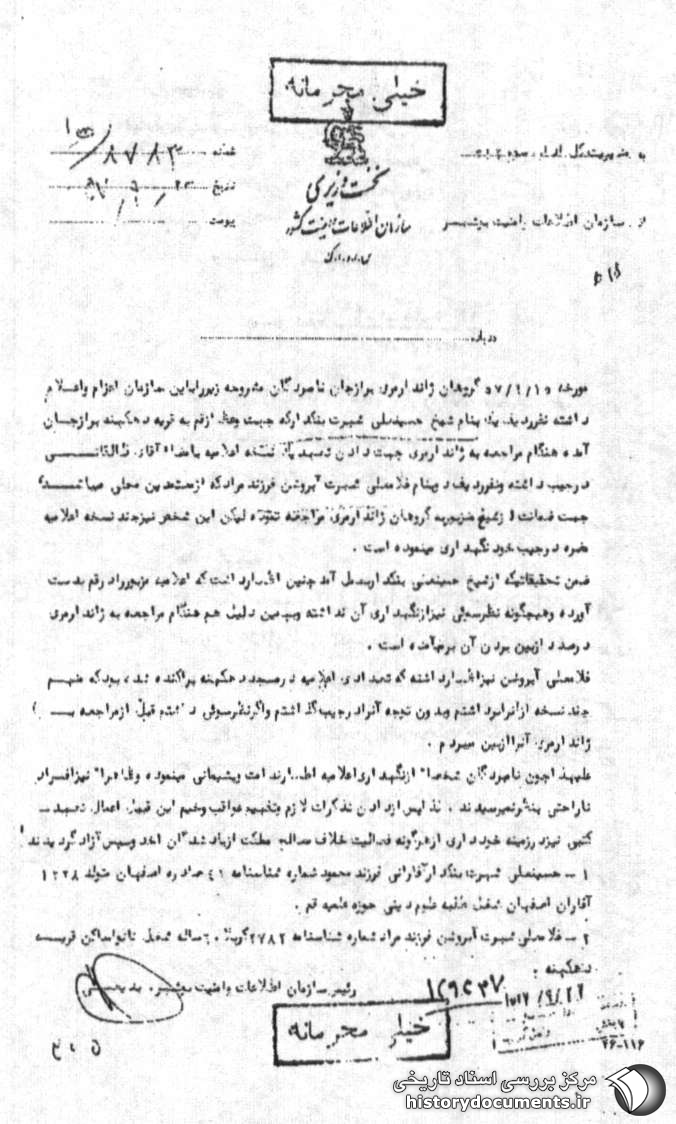 خیلی محرمانه
به مدیریت کل اداره سوم ۳۱۲
شماره ۸۷۸۳
تاریخ
پیوست
نخست وزیری
سازمان اطلاعات و امنیت کشور
س.ا.و.ا.ک
از سازمان اطلاعات و امنیت بوشهر
درباره
مورخه ۵۷/۹/۱۵ گروهان ژاندارمری برازجان نامبردگان مشروحه زیر را باین سازمان اعزام و اعلام
داشته نفر ردیف یک بنام شیخ حسینعلی شهرت بنکدار که جهت وعظ از قم به قریه دهکهنه برازجان
آمده هنگام مراجعه به ژاندارمری جهت دادن تعهد یک نسخه اعلامیه بامضاء آقای طالقانی
در جیب داشته و نفر ردیف دو بنام غلامعلی شهرت آبروشن فرزند مراد که از معتمدین محلی میباشد
جهت ضمانت از شیخ مزبور به گروهان ژاندارمری مراجعه نموده لیکن این شخص نیز چند نسخه اعلامیه
مضره در جیب خود نگهداری مینموده است .
ضمن تحقیقاتیکه از شیخ حسینعلی بنکدار بعمل آمد چنین اظهار داشت که اعلامیه مزبور را در قم بدست
آورده و هیچگونه نظر سوئی نیز از نگهداری آن نداشته و بهمین دلیل هم هنگام مراجعه به ژاندارمری
درصدد ازبین بردن آن برنیامده است .
غلامعلی آبروشن نیز اظهار داشته که تعدادی اعلامیه در مسجد دهکهنه پراکنده شده بود که منهم
چند نسخه از آنرا برداشتم و بدون توجه آنرا در جیب گذاشتم و اگر نظر سوئی داشتم قبل از مراجعه به
ژاندارمری آنرا از بین میبردم .
علیهذا چون نامبردگان شخصا" از نگهداری اعلامیه اظهار ندامت و پشیمانی مینموده و ظاهرا" نیز افراد
ناراحتی بنظر نمیرسیدند . لذا پس از دادن تذکرات لازم و تفهیم عواقب وخیم این قبیل اعمال تعهد
کتبی نیز در زمینه خودداری از هرگونه فعالیت خلاف مصالح مملکت از یاد شدگان اخذ و سپس آزاد گردیدند
۱ - حسینعلی شهرت بنکدار آفارانی فرزند محمود شماره شناسنامه ۴۱ صادره اصفهان متولد ۱۳۳۸
آفاران اصفهان شغل طلبه علوم دینی حوزه علمیه قم .
۲ - غلامعلی شهرت آبروشن فرزند مراد شماره شناسنامه ۲۷۸۲ ۶۰ ساله شغل نانوا ساکن قریه
دهکهنه .
رئیس سازمان اطلاعات و امنیت بوشهر .
۱۲۹۲۳۷
خیلی محرمانه
۲۶-۱۱۶
مرکز بررسی اسناد تاریخی
historydocuments.ir